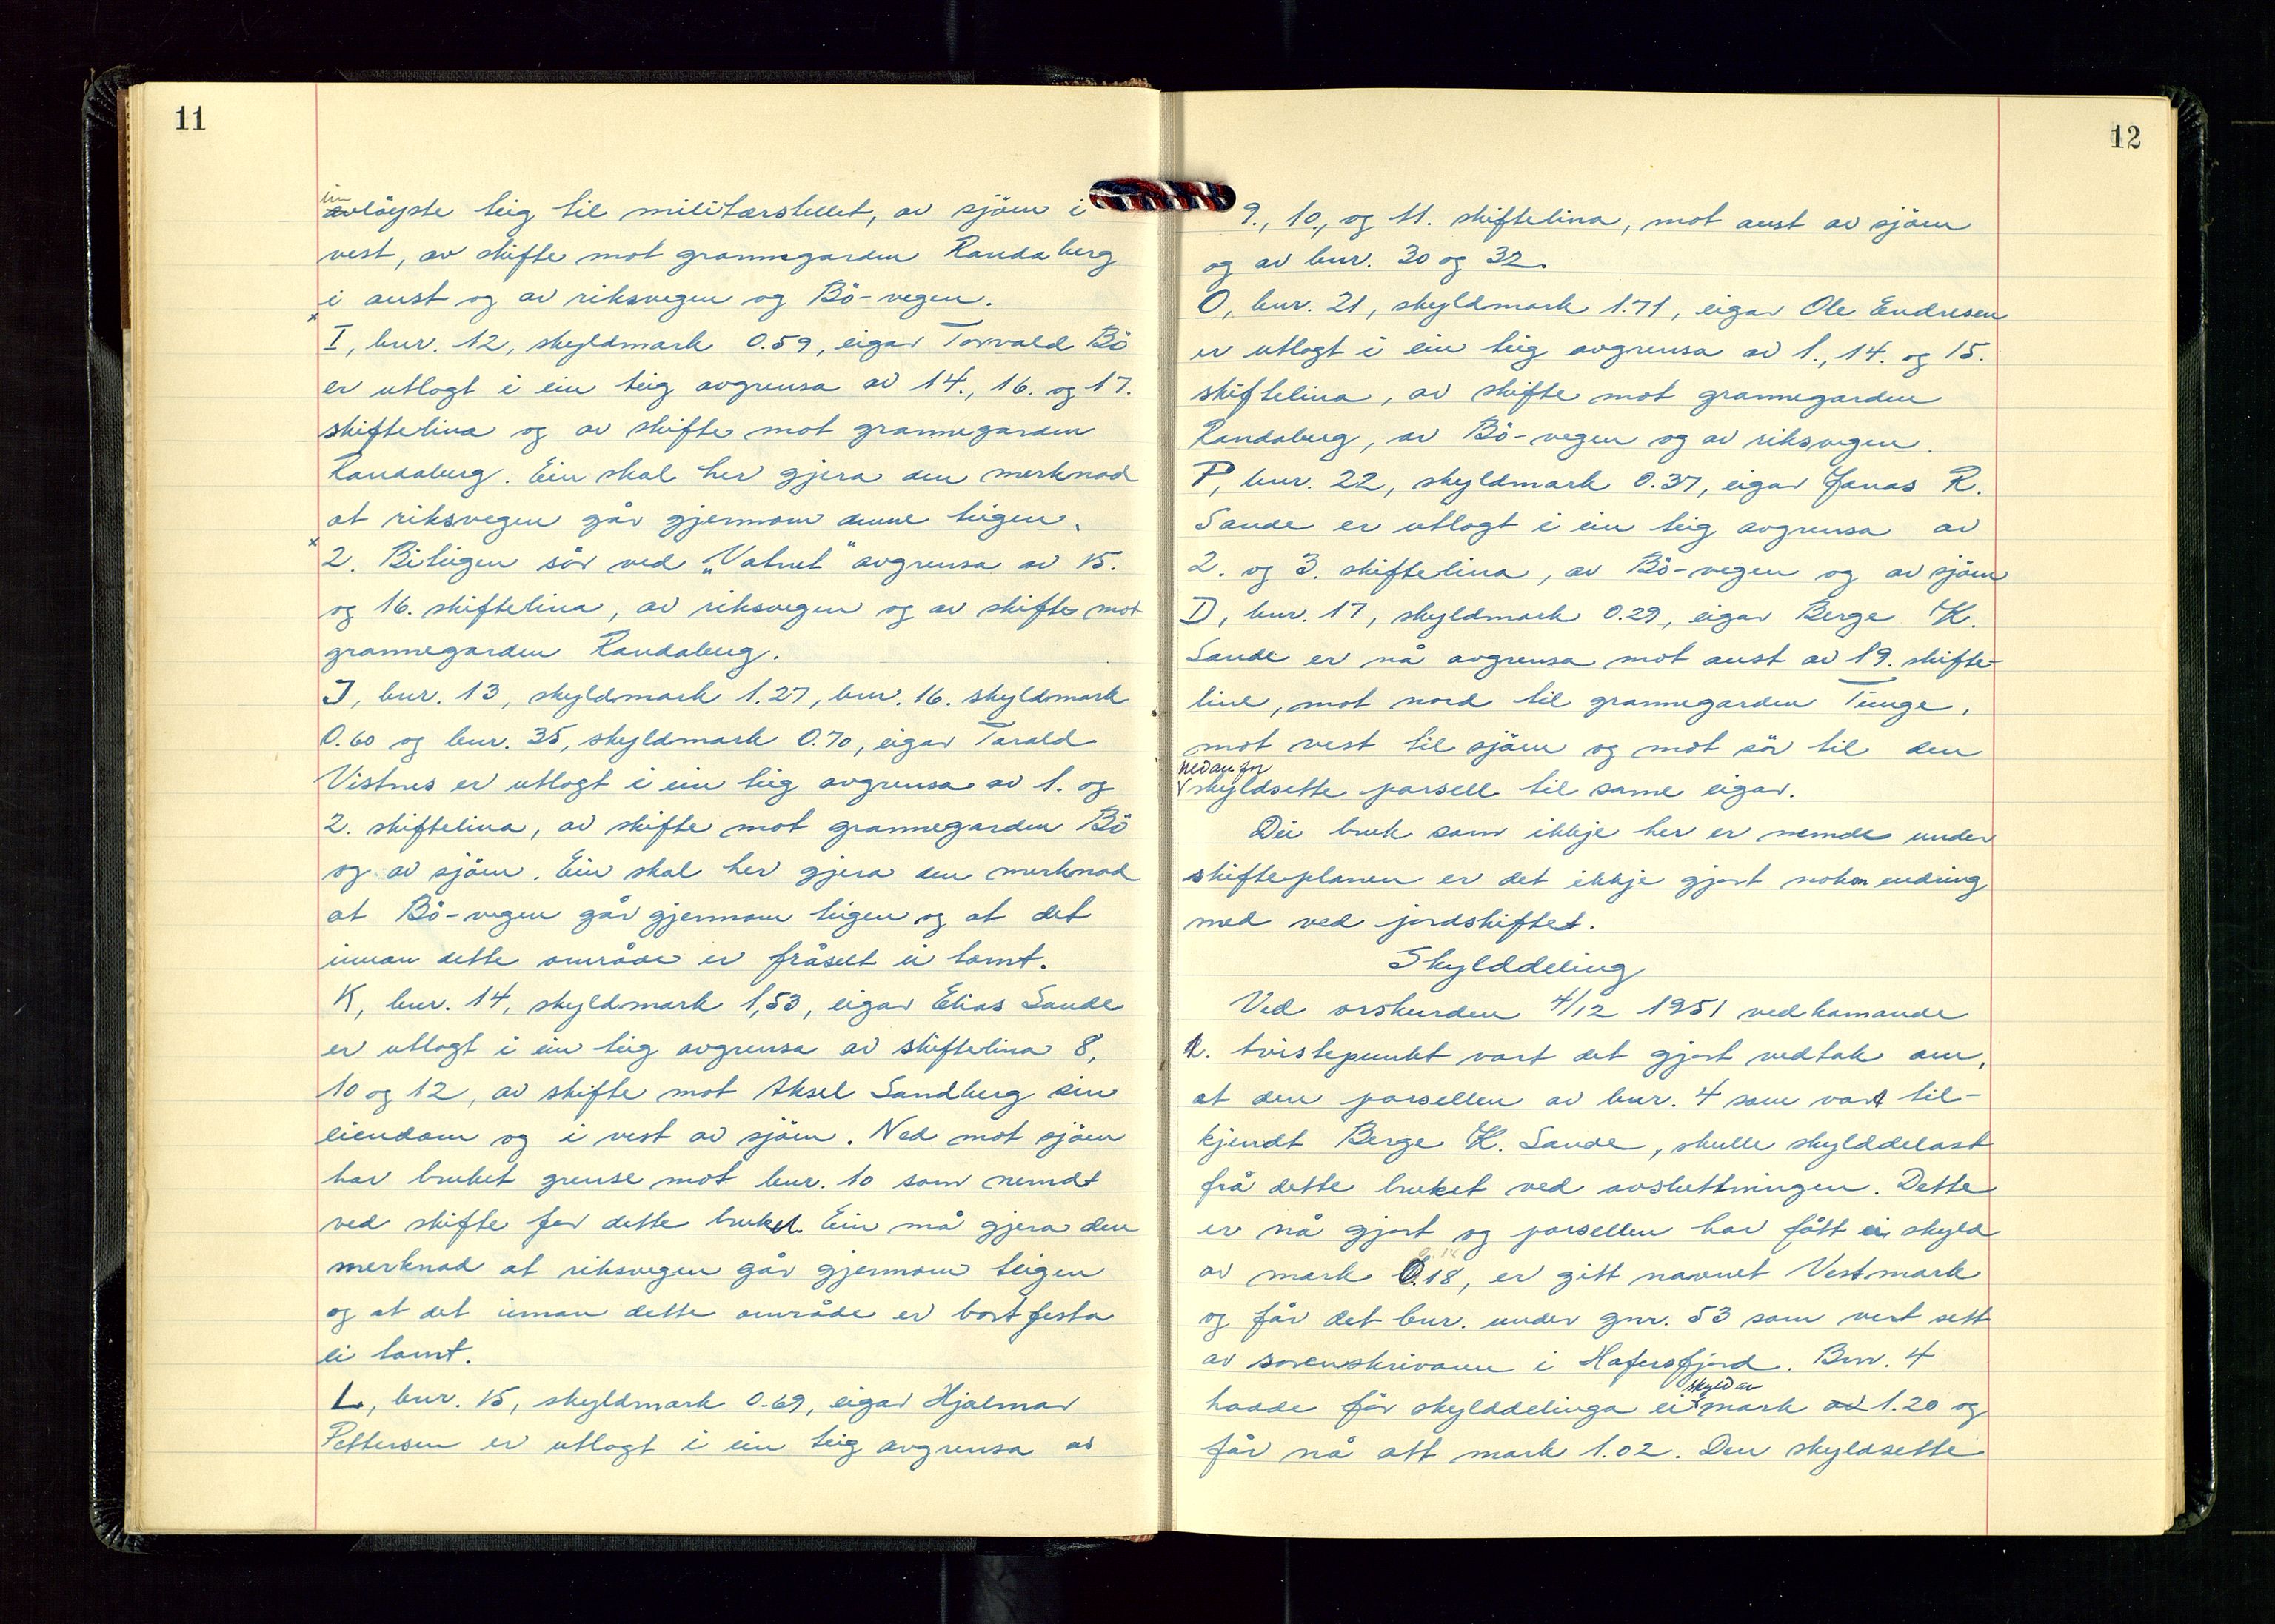 11
innløyste teig til militærstellet, av sjöen i
vest, av skifte mot grannegarden Randaberg
i aust og av riksvegen og Bö-vegen.
x
I, bnr. 12, skyldmark 0.59, eigar Torvald Bö
er utlagt i ein teig avgrensa av 14., 16. og 17.
skiftelina og av skifte mot grannegarden
Randaberg. Ein skal her gjera den merknad
at riksvegen går gjennom denne teigen.
x
2. Biteigen sör ved „Vatnet" avgrensa av 15.
og 16. skiftelina, av riksvegen og av skifte mot
grannegarden Randaberg.
J, bnr. 13, skyldmark 1.27, bnr. 16. skyldmark
0.60 og bnr. 35, skyldmark 0.70, eigar Tarald
Vistnes er utlagt i ein teig avgrensa av 1. og
2. skiftelina, av skifte mot grannegarden Bö
og av sjöen. Ein skal her gjera den merknad
at Bö-vegen går gjennom teigen og at det
innan dette område er fråselt ei tomt.
K, bnr. 14, skyldmark 1,53, eigar Elias Sande
er utlagt i ein teig avgrensa av skiftelina 8,
10 og 12, av skifte mot Aksel Sandberg sin
eiendom og i vest av sjöen. Ned mot sjöen
har bruket grense mot bnr. 10 som nemdt
ved skifte for dette bruket. Ein må gjera den
merknad at riksvegen går gjennom teigen
og at det innan dette område er bortfesta
ei tomt.
L, bnr. 15, skyldmark 0.69, eigar Hjalmar
Pettersen er utlagt i ein teig avgrensa av
12
9., 10., og 11. skiftelina, mot aust av sjöen
og av bnr. 30 og 32.
O, bnr. 21, skyldmark 1.71, eigar Ole Endresen
er utlagt i ein teig avgrensa av 1., 14. og 15.
skiftelina, av skifte mot grannegarden
Randaberg, av Bö-vegen og av riksvegen.
P, bnr. 22, skyldmark 0.37, eigar Jonas R.
Sande er utlagt i ein teig avgrensa av
2. og 3. skiftelina, av Bö-vegen og av sjöen
D, bnr. 17, skyldmark 0.29, eigar Berge K.
Sande er nå avgrensa mot aust av 19. skifte-
line, mot nord til grannegarden Tunge,
mot vest til sjöen og mot sör til den
nedanfor
skyldsette parsell til same eigar.
Dei bruk som ikkje her er nemde under
skifteplanen er det ikkje gjort noken endring
med ved jordskiftet.
Skylddeling
Ved orskurden 4/12 1951 vedkomande
1. tvistepunkt vart det gjort vedtak om,
at den parsellen av bnr. 4 som vart til-
kjendt Berge K. Sande, skulle skylddelast
frå dette bruket ved avsluttningen. Dette
er nå gjort og parsellen har fått ei skyld
av mark 0.18, er gitt navnet Vestmark
og får det bnr. under gnr. 53 som vert sett
av sorenskrivaren i Hafrsfjord. Bnr. 4
skyld av
hadde för skylddelinga ei mark av 1.20 og
får nå att mark 1.02. Den skyldsette